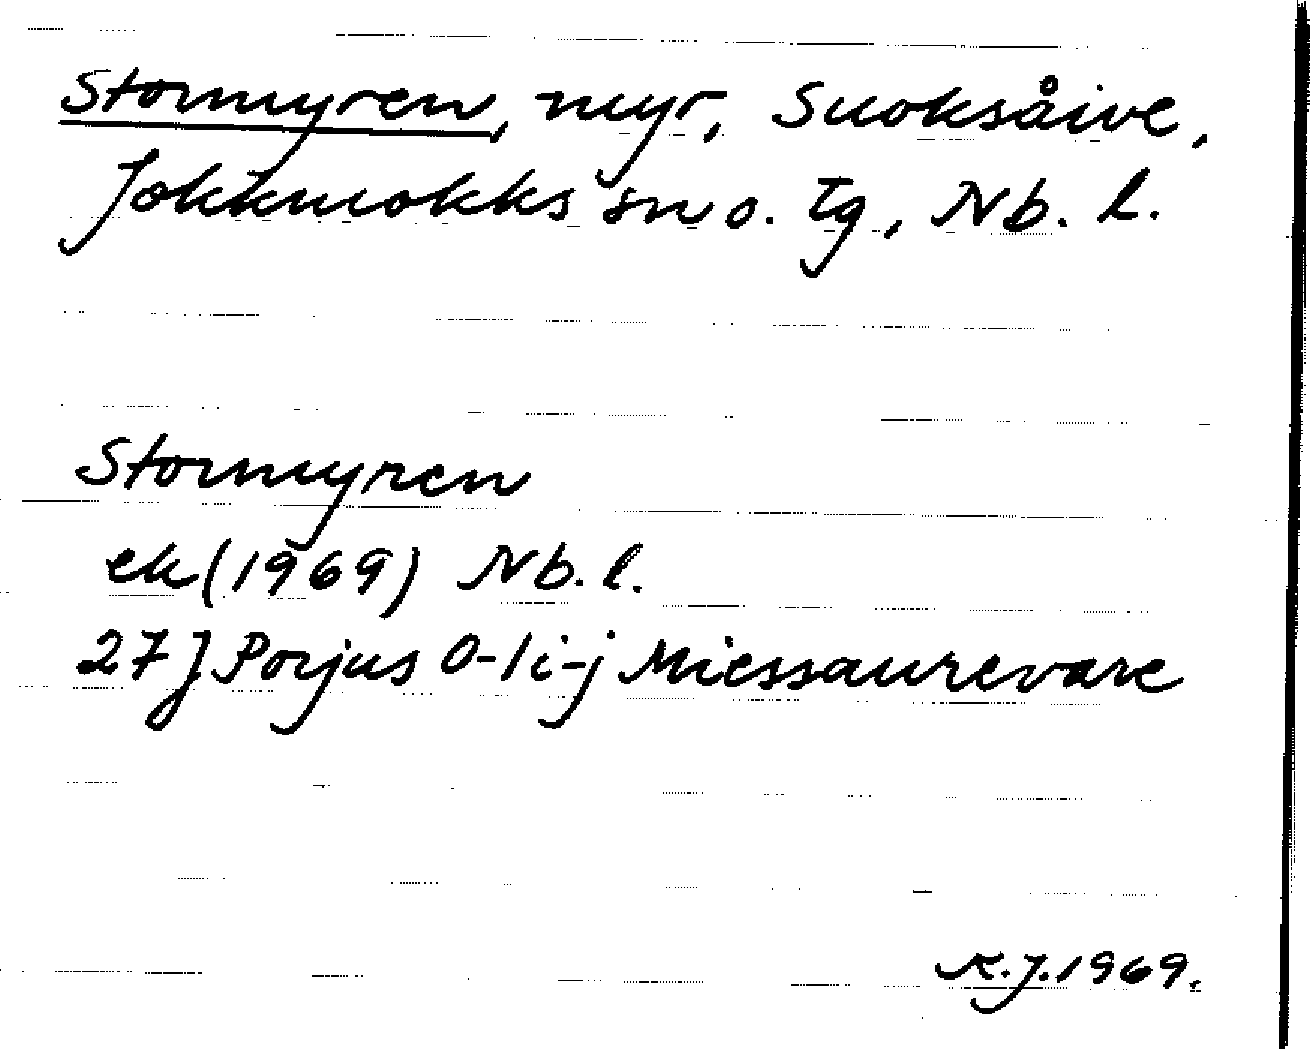 Stormyren, myr, Suoksåive,
Jokkmokks sn o. tg, Nb. l.
Stormyren
ek (1969) Nb. l.
27 J Porjus 0-1 i-j Miessaurevare
K.J. 1969.